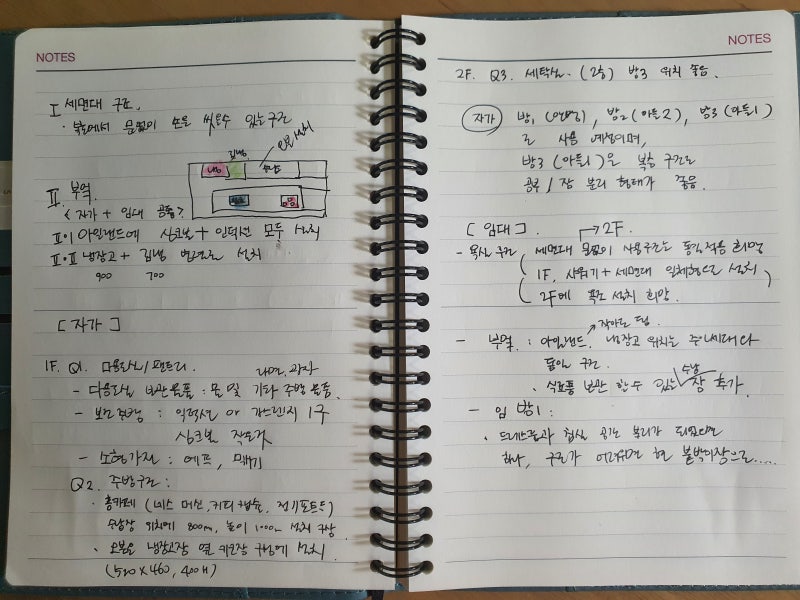 NOTES
I 세면대 구조.
· 복도에서 문없이 손을 씻을수 있는구조
김냉
냉장
II. 부엌
< 자가 + 임대 공통 >
II·I 아일랜드에 싱크볼 + 인덕션 모두 설치
II·II 냉장고 + 김냉 설치
900 700
[ 자가 ]
1F. Q1. 다용도실/팬트리.
라면, 과자
- 다용도실 보관용품 : 물 및 기타 주방 용품.
- 보조주방 : 인덕션 or 가스렌지 1구
싱크볼 작도
- 소형가전 : 에프, 믹서기
Q2. 주방구조 :
· 홈카페 (네스 머신, 커피 캡슐, 전기포트)
수납장 위치에 800m, 높이 1000m 설치 구상
· 오븐은 냉장고장 옆 키큰장 구상에 설치.
(520 x 460, 400H)
NOTES
2F. Q3. 세탁실. (2층) 방3 위치 좋음.
자가 방1 (안방), 방2 (아들2), 방3 (아들1)
로 사용 예정이며,
방3 (아들1)은 복층 구조로
공부 / 잠 분리 형태가 좋음.
[ 임대 ]
→2F.
- 욕실 구조 세면대 문없이 사용구조는 동일적용 희망
1F. 샤워기 + 세면대 일체형으로 설치
2F에 욕조 설치 희망.
작아도 됨.
- 부엌 : 아일랜드, 냉장고 위치는 주니세대와
동일 구조.
수납
· 식료품 보관 할수 있는 장 추가.
- 방1 :
· 드레스룸과 침실 공간 분리가 되었으면
하나, 구조가 어려우면 현 붙박이장으로.....